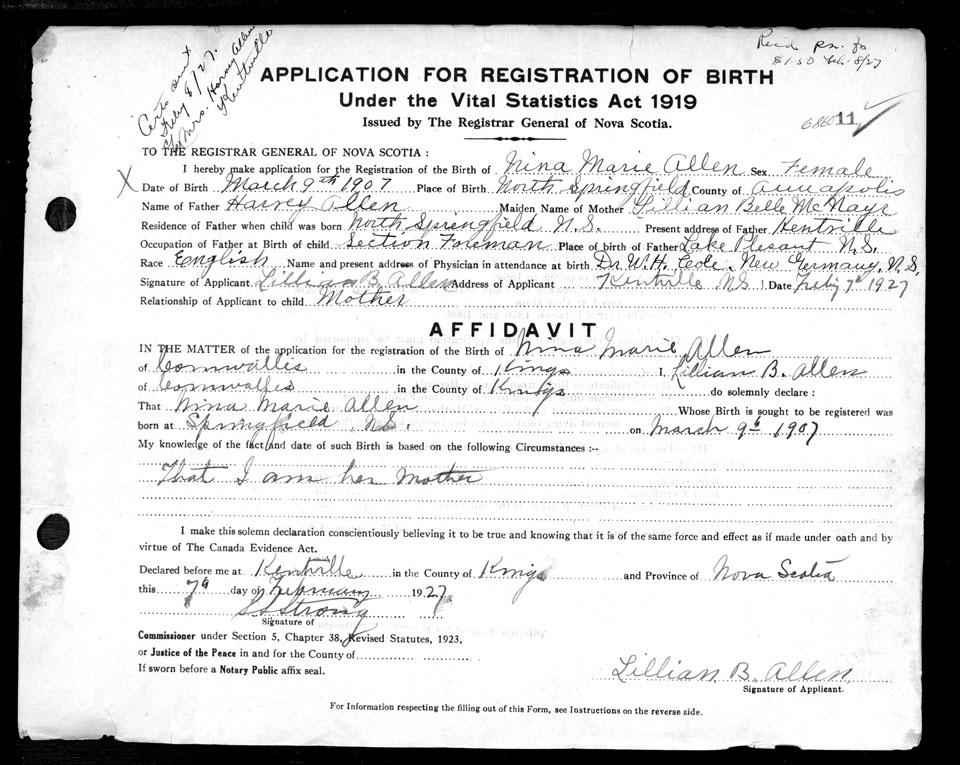 Certs sent
Feby 8/27.
Mrs. Harvey Allen
Kentville
$1.50 Feb. 8/27
APPLICATION FOR REGISTRATION OF BIRTH
Under the Vital Statistics Act 1919
Issued by The Registrar General of Nova Scotia.
11
TO THE REGISTRAR GENERAL OF NOVA SCOTIA :
I hereby make application for the Registration of the Birth of Nina Marie Allen Sex Female
X Date of Birth March 9th 1907 Place of Birth North Springfield County of Annapolis
Name of Father Harvey Allen Maiden Name of Mother Lillian Belle
Residence of Father when child was born North Springfield N.S. Present address of Father Kentville
Occupation of Father at Birth of child Section Foreman Place of birth of Father Lake Plesant N.S.
Race English Name and present address of Physician in attendance at birth Dr W. H. Cole. New Germany, N.S,
Signature of Applicant Lillian B. Allen Address of Applicant Kentville N.S Date Feby 7th 1927
Relationship of Applicant to child Mother
AFFIDAVIT
IN THE MATTER of the application for the registration of the Birth of Nina Marie Allen
of Cornwallis in the County of Kings I, Lillian B. Allen
of Cornwallis in the County of Kings do solemnly declare :
That Nina Marie Allen Whose Birth is sought to be registered was
born at Springfield N.S. on March 9th 1907
My knowledge of the fact and date of such Birth is based on the following Circumstances :--
That I am her Mother
I make this solemn declaration conscientiously believing it to be true and knowing that it is of the same force and effect as if made under oath and by
virtue of The Canada Evidence Act.
Declared before me at Kentville in the County of Kings and Province of Nova Scotia
this 7th day of February 1927
S S Strong
Signature of
Commissioner under Section 5, Chapter 38, Revised Statutes, 1923,
or Justice of the Peace in and for the County of
If sworn before a Notary Public affix seal.
Lillian B. Allen
Signature of Applicant.
For Information respecting the filling out of this Form, see Instructions on the reverse side.